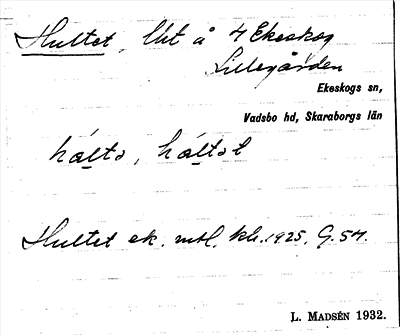 Hultet, lht å 4 Ekeskog
Lillegården
Ekeskogs sn,
Vadsbo hd, Skaraborgs län
hál̠tə, hál̠tət
Hultet ek. mtl. kb. 1925, G. 54.
L. MADSÉN 1932.